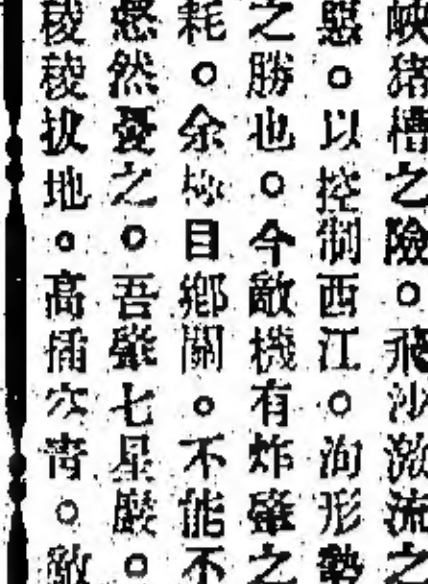 峽猪槽之險。飛沙激流之
惡。以控制西江。洵形勢
之勝也。今敵機有炸肇之
耗。余極目鄉關。不能不
愁然憂之。吾肇七星巖。
稜稜拔地。高插穴靑。敵